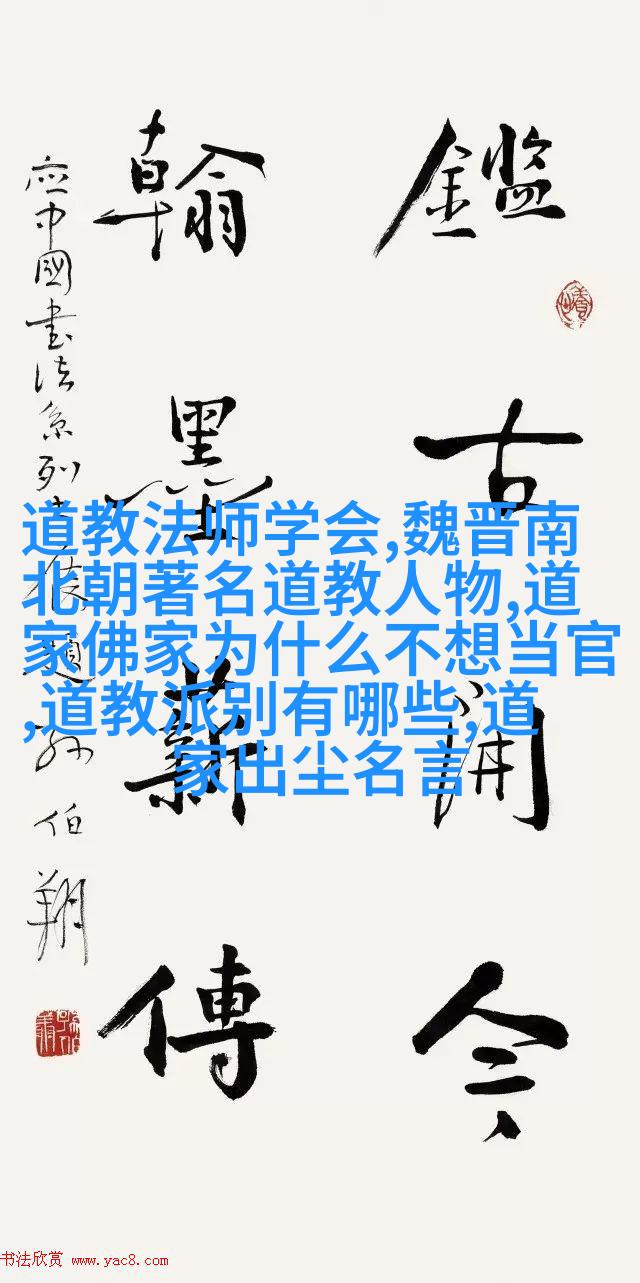 鑑古開今
翰墨薪傳
應中國書法系列展題孫伯翔
道教法师学会,魏晋南
北朝著名道教人物,道
家佛家为什么不想当官
,道教派别有哪些,道
家出尘名言
书法欣赏 www.yac8.com